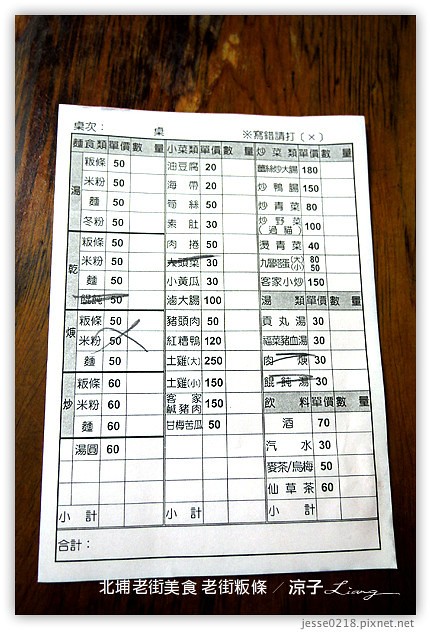 桌次： 桌 ※寫錯請打（×）
麵食類 單價 數 量 小菜類 單價 數 量 炒菜類 單價 數 量
湯
粄條 50
米粉 50
麵 50
冬粉 50
乾
粄條 50
米粉 50
麵 50
餛飩 50
焿
粄條 50
米粉 50
麵 50
炒
粄條 60
米粉 60
麵 60
湯圓 60
小 計
油豆腐 20
海 帶 20
筍 絲 50
素 肚 30
肉 捲 50
大頭菜 30
小黃瓜 30
滷大腸 100
豬頭肉 50
紅糟鴨 120
土雞(大) 250
土雞(小) 150
客家鹹豬肉 150
甘梅苦瓜 50
小 計
薑絲炒大腸 180
炒鴨腸 150
炒青菜 80
炒野菜（過貓） 100
燙青菜 40
九層塔蛋(大)(小) 80 50
客家小炒 150
湯 類 單價 數 量
貢丸湯 30
福菜豬血湯 30
肉 焿 30
餛飩湯 30
飲 料 單價 數 量
酒 70
汽 水 30
麥茶/烏梅 50
仙草茶 60
小 計
合計：
北埔老街美食 老街粄條 / 涼子 Liang
jesse0218.pixnet.net